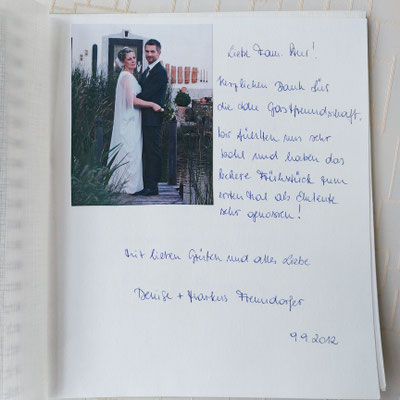 Liebe Fam.
Herzlichen Dank für
die tolle Gastfreundschaft.
Wir fühlten uns sehr
wohl und haben das
leckere Frühstück zum
ersten Mal als Eheleute
sehr genossen!
Mit lieben Grüßen und alles Liebe
Denise + Markus
9.9.2012